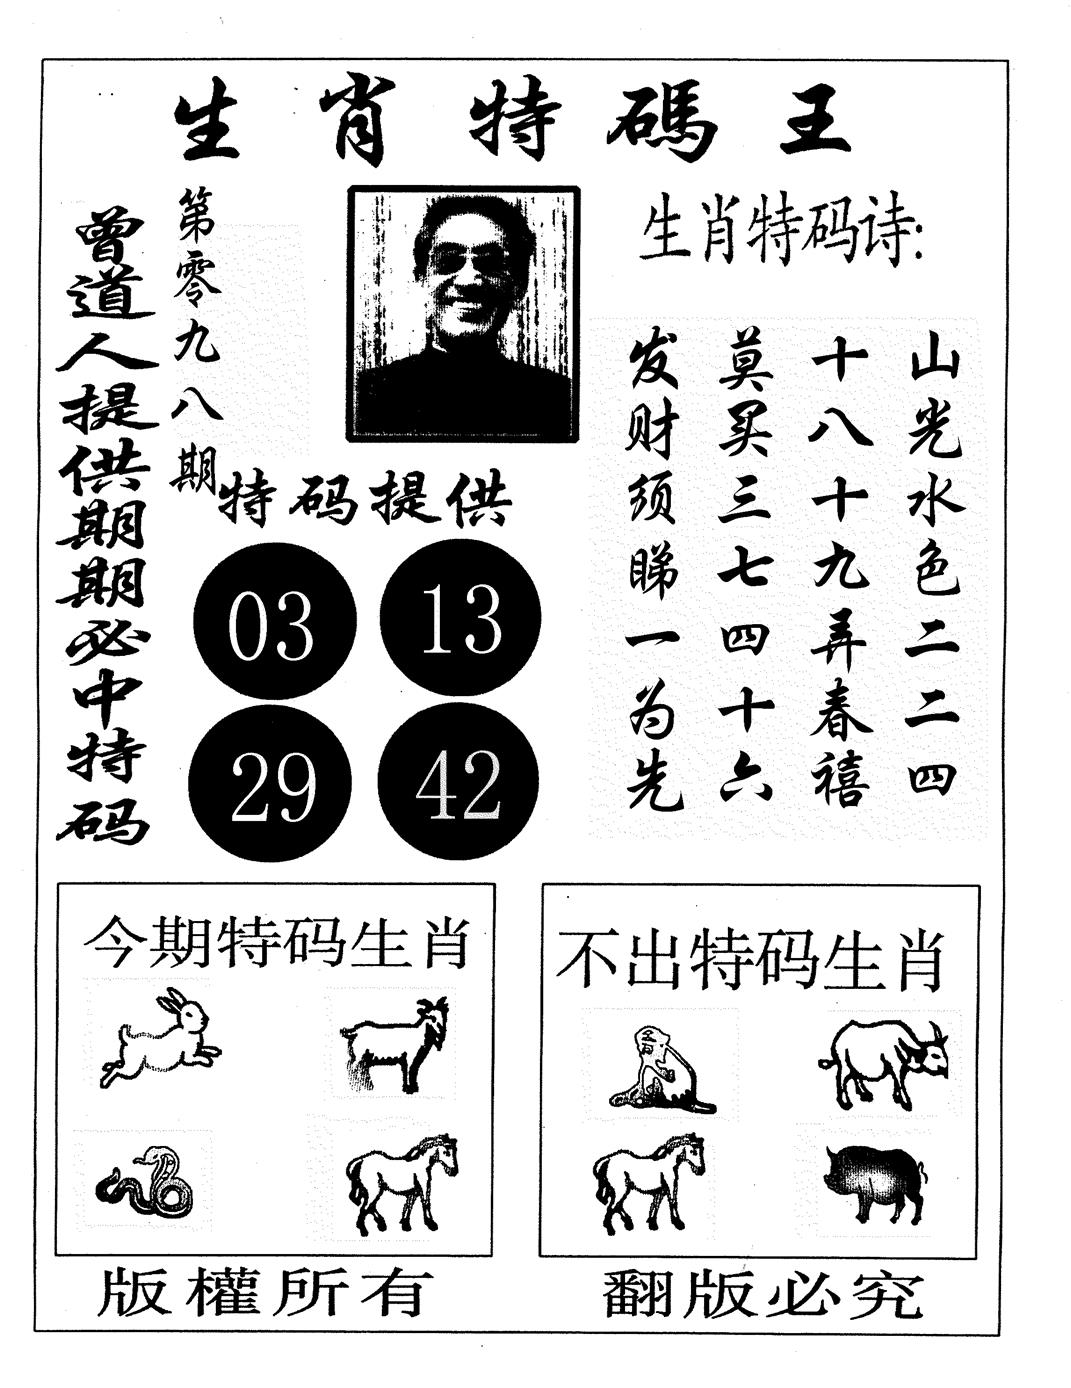 生肖特碼王
曾道人提供期期必中特码
第零九八期
生肖特码诗:
山光水色二二四
十八十九弄春禧
莫买三七四十六
发财须睇一为先
特码提供
03 13
29 42
今期特码生肖
不出特码生肖
版權所有
翻版必究